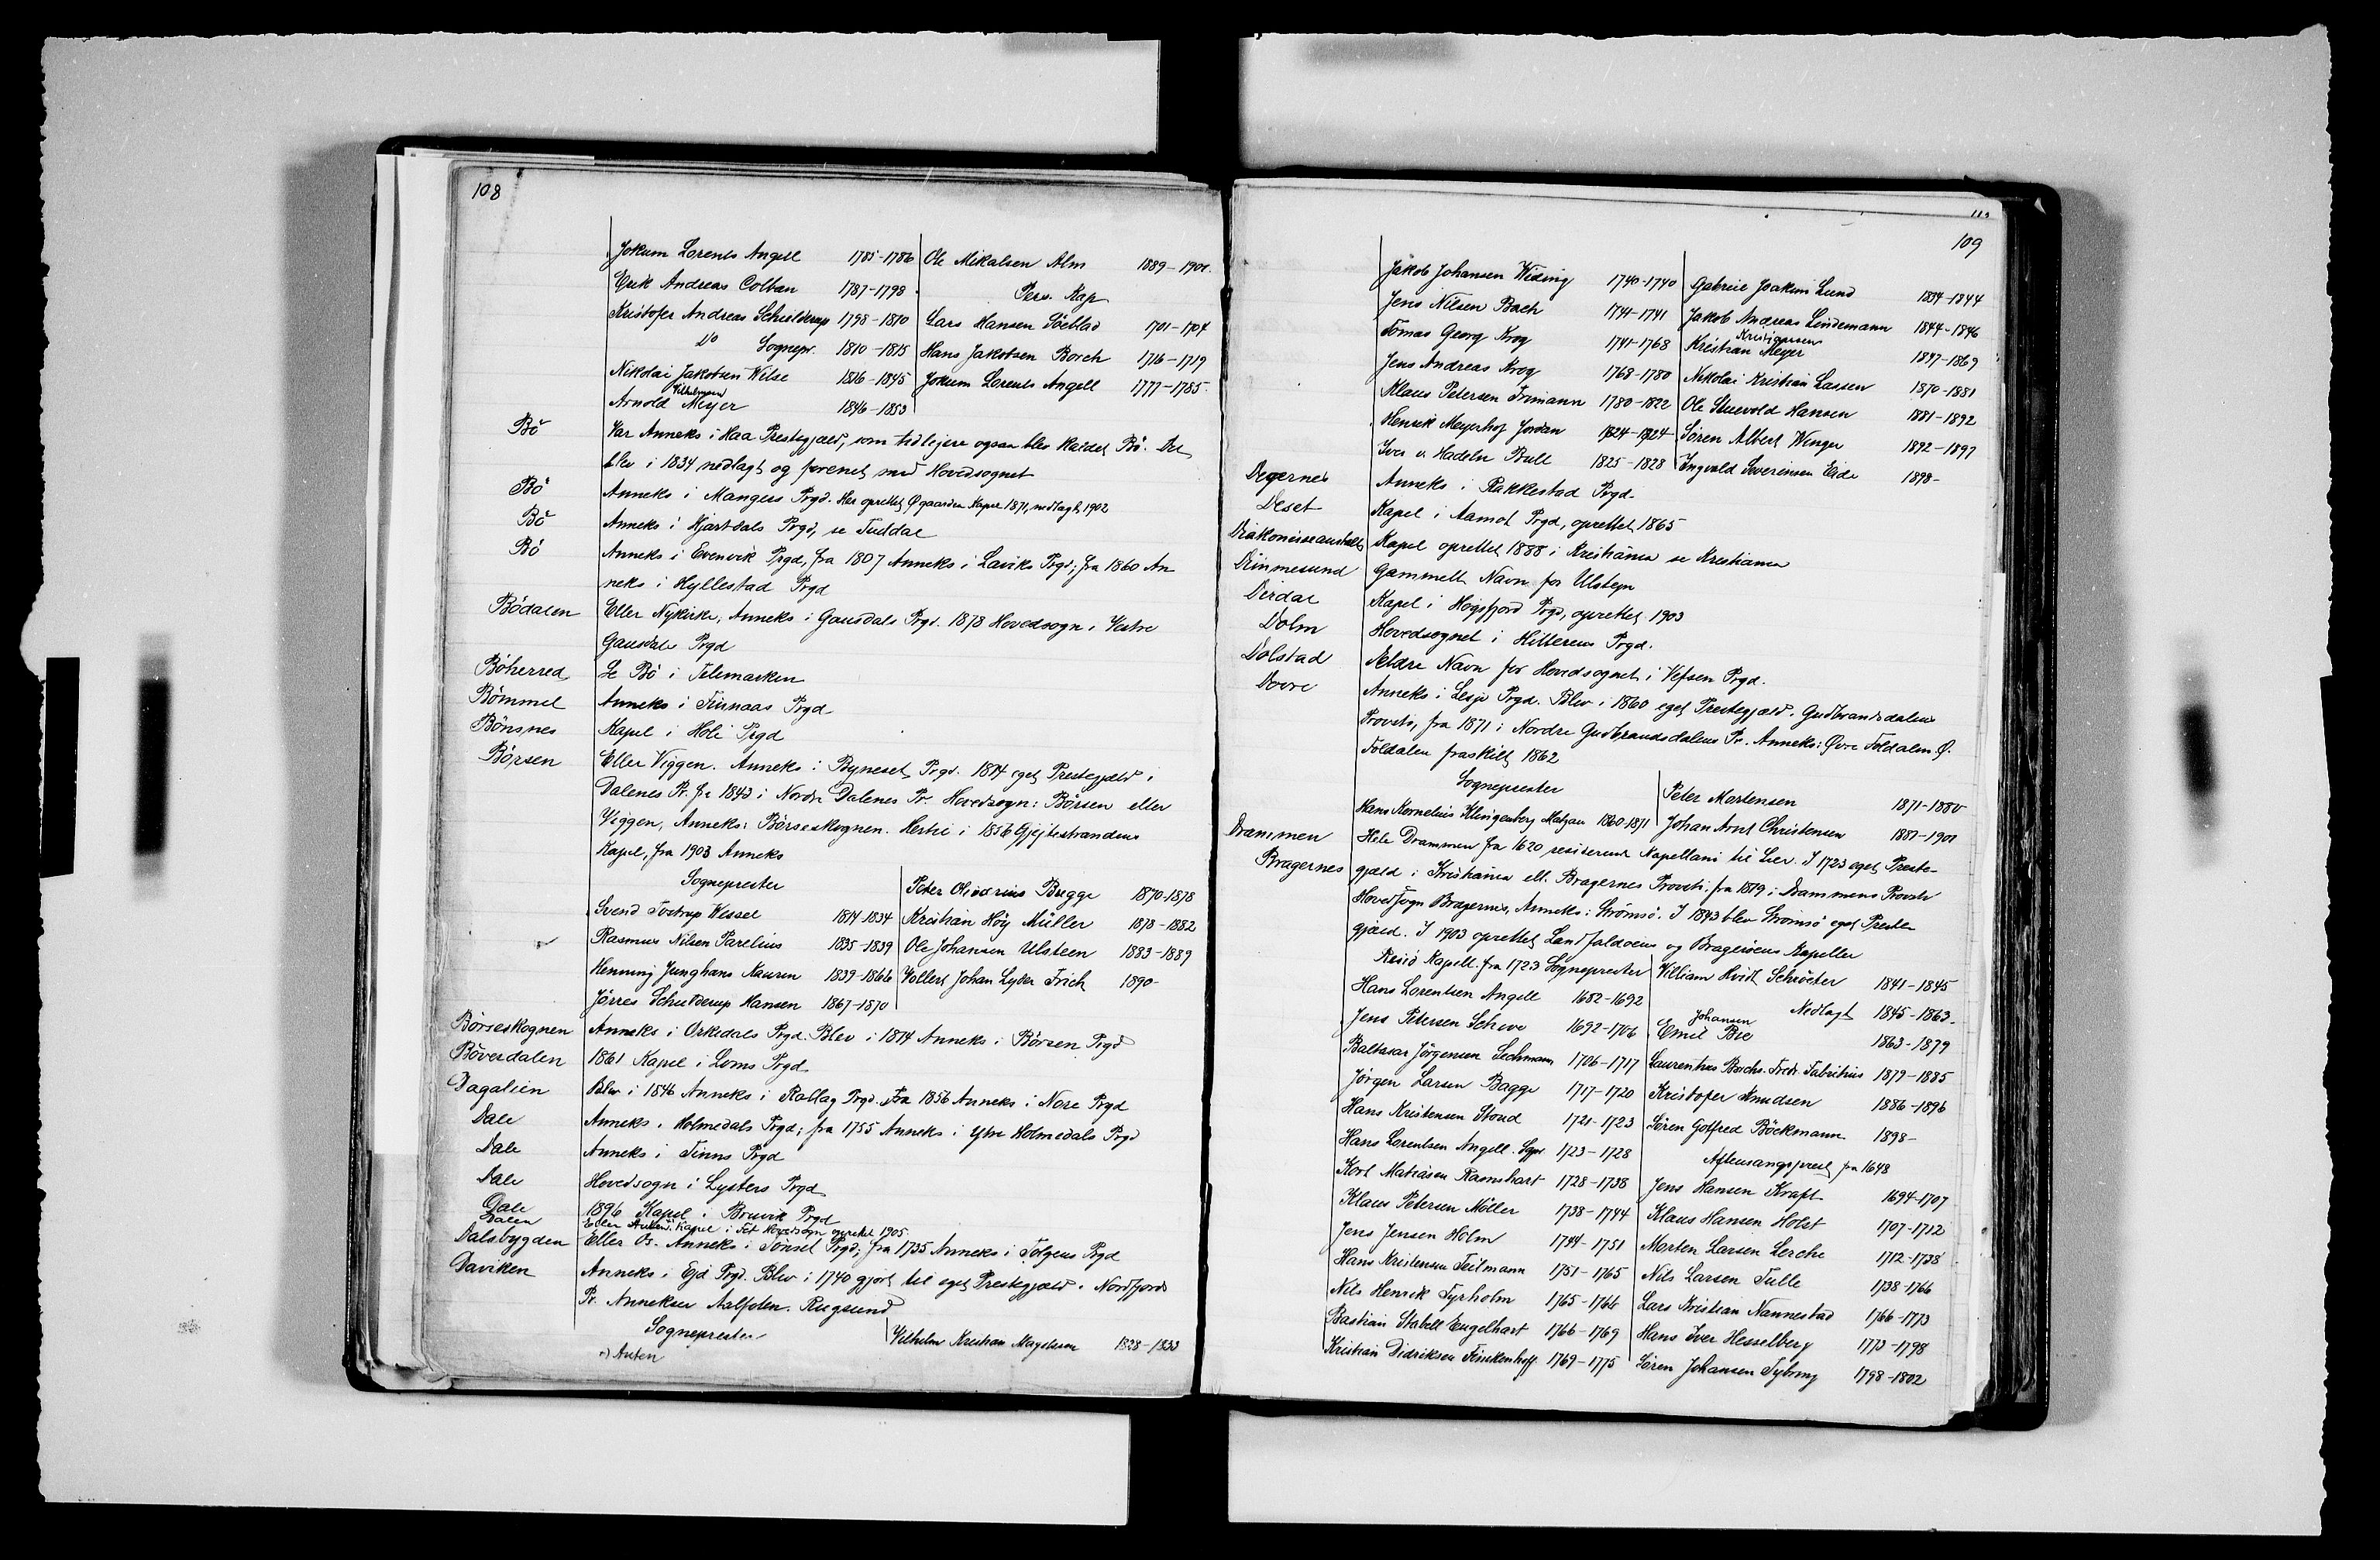 108
Jokum Lorents Angell 1785-1786 Ole Mikalsen Alm 1889-1901.
Erik Andreas Colban 1787-1798 Pers. Kap
Kristofer Andreas Schielderup 1798-1810 Lars Hansen Söeblad 1701-1704
Do Sognepr. 1810-1815 Hans Jakobsen Borch 1716-1719
Nikolai Jakobsen Wilse 1816-1845 Jokum Lorents Angell 1777-1785.
Vilhelmsen
Arnold Meyer 1846-1853
Bö Var Anneks i Haa Prestegjæld, som tidligere ogsaa blev kaldet Bö. Det
blev i 1834 nedlagt og forenet med Hovedsognet
Bö Anneks i Mangers Prgd. Her oprettet Øgaarden Kapel 1871, nedlagt 1902
Bö Anneks i Hjartdals Prgd, se Tuddal
Bö Anneks i Evenvik Prgd, fra 1807 Anneks i Laviks Prgd; fra 1860 An
neks i Hyllestad Prgd
Bödalen Eller Nykirke, Anneks i Gausdals Prgd. 1878 Hovedsogn i Vestre
Gausdals Prgd
Böherred Se Bö i Telemarken
Bömmel Anneks i Finnaas Prgd
Bönsnes Kapel i Hole Prgd
Börsen Eller Viggen. Anneks i Bynesets Prgd. 1814 eget Prestegjæld i
Dalenes Pr. fr 1843 i Nordre Dalenes Pr. Hovedsogn: Börsen eller
Viggen, Anneks: Börseskognen. Hertil i 1856 Gjejtestrandens
Kapel, fra 1903 Anneks
Sogneprester Peter Olivarius Bugge 1870-1878
Svend Tostrup Wessel 1814-1834 Kristian Höy Müller 1878-1882
Rasmus Nilsen Parelius 1835-1839 Ole Johansen Ulsteen 1883-1889
Henning Junghans Kaurin 1839-1866 Vollert Johan Lyder Frich 1890-
Jörres Schielderup Hansen 1867-1870
Börseskognen Anneks i Orkedals Prgd. Blev i 1814 Anneks i Börsen Prgd
Böverdalen 1861 Kapel i Loms Prgd
Dagalien Blev i 1846 Anneks i Rollag Prgd. Fra 1856 Anneks i Nore Prgd
Dale Anneks i Holmedals Prgd; fra 1755 Anneks i Ytre Holmedals Prgd
Dale Anneks i Tinns Prgd
Dale Hovedsogn i Lysters Prgd
Dale 1896 Kapel i Bruvik Prgd
Dalen Eller Auten. Kapel i Fet Hovedsogn oprettet 1905.
Dalsbygden Eller Os. Anneks i Tönset Prgd; fra 1735 Anneks i Tolgens Prgd
Daviken Anneks i Ejd Prgd. Blev i 1740 gjort til eget Prestegjæld i Nordfjords
Pr. Annekser Aalfoten. Rugsund
Sogneprester Vilhelm Kristian Magelssen 1828-1833
Auten
109
Jakob Johansen Widing 1740-1740 Gabriel Joakim Lund 1834-1844
Jens Nilsen Bach 1741-1741 Jakob Andreas Lindemann 1844-1846
Kristiansen
Tomas Georg Krog 1741-1768 Kristian Meyer 1847-1869
Jens Andreas Krog 1768-1780 Nikolai Kristian Lassen 1870-1881
Klaus Petersen Frimann 1780-1822 Ole Stuevold Hansen 1881-1892
Henrik Meyerhof Jordan 1824-1824 Sören Albert Winger 1892-1897
Iver v. Hadeln Bull 1825-1828 Engvald Severinsen Eide 1898-
Degernes Anneks i Rakkestad Prgd
Deset Kapel i Aamot Prgd, oprettet 1865
Diakonisseanstalts Kapel oprettet 1888 i Kristiania se Kristiania
Dimmesund Gammelt Navn for Ulstejn
Dirdal Kapel i Högsfjord Prgd, oprettet 1903
Dolm Hovedsognet i Hitterens Prgd.
Dolstad Ældre Navn for Hovedsognet i Vefsen Prgd.
Dovre Anneks i Lesje Prgd. Blev i 1860 eget Prestegjæld. Gudbrandsdalens
Provsti, fra 1871 i Nordre Gudbrandsdalens Pr. Anneks: Øvre Foldalen Ø.
Foldalen fraskilt 1862
Sogneprester Peter Mortensen 1871-1880
Hans Kornelius Klingenberg Matzau 1860-1871 Johan Arnt Christensen 1881-1901
Drammen Hele Drammen fra 1620 residerende Kapellani til Lier. I 1723 eget Preste-
Bragernes gjæld i Kristiania ell. Bragernes Provsti: fra 1819 i Drammens Provsti
Hovedsogn Bragernes, Anneks: Strömsö. I 1843 blev Strömsö eget Preste
gjæld. I 1903 oprettet Landfaldöens og Bragerøens Kapeller
Resid Kapell. fra 1723 Sogneprester William Hvidt Schröeter 1841-1845
Hans Lorentsen Angell 1682-1692 Nedlagt 1845-1863.
Johansen
Jens Petersen Schive 1692-1706 Emil Bie 1863-1879
Baltasar Jörgensen Sechmann 1706-1717 Laurentius Borchs. Fredr. Fabritius 1879-1885
Jörgen Larsen Bagge 1717-1720 Kristofer Knudsen 1886-1896
Hans Kristensen Stoud 1721-1723 Sören Gotfred Böckmann 1898-
Hans Lorentsen Angell. Sgpr 1723-1728 Aftensangsprest fra 1648
Kort Matiasen Ramshart 1728-1738 Jens Hansen Kraft 1694-1707
Klaus Petersen Möller 1738-1744 Klaus Hansen Holst 1707-1712
Jens Jensen Holm 1744-1751 Morten Larsen Lerche 1712-1738
Hans Kristensen Teilmann 1751-1765 Nils Larsen Tulle 1738-1766
Nils Henrik Tyrholm 1765-1766 Lars Kristian Nannestad 1766-1773
Bastian Stabell Engelhart 1766-1769 Hans Iver Hesselberg 1773-1798
Kristian Didriksen Finckenhoff 1769-1775 Sören Johansen Tybring 1798-1802